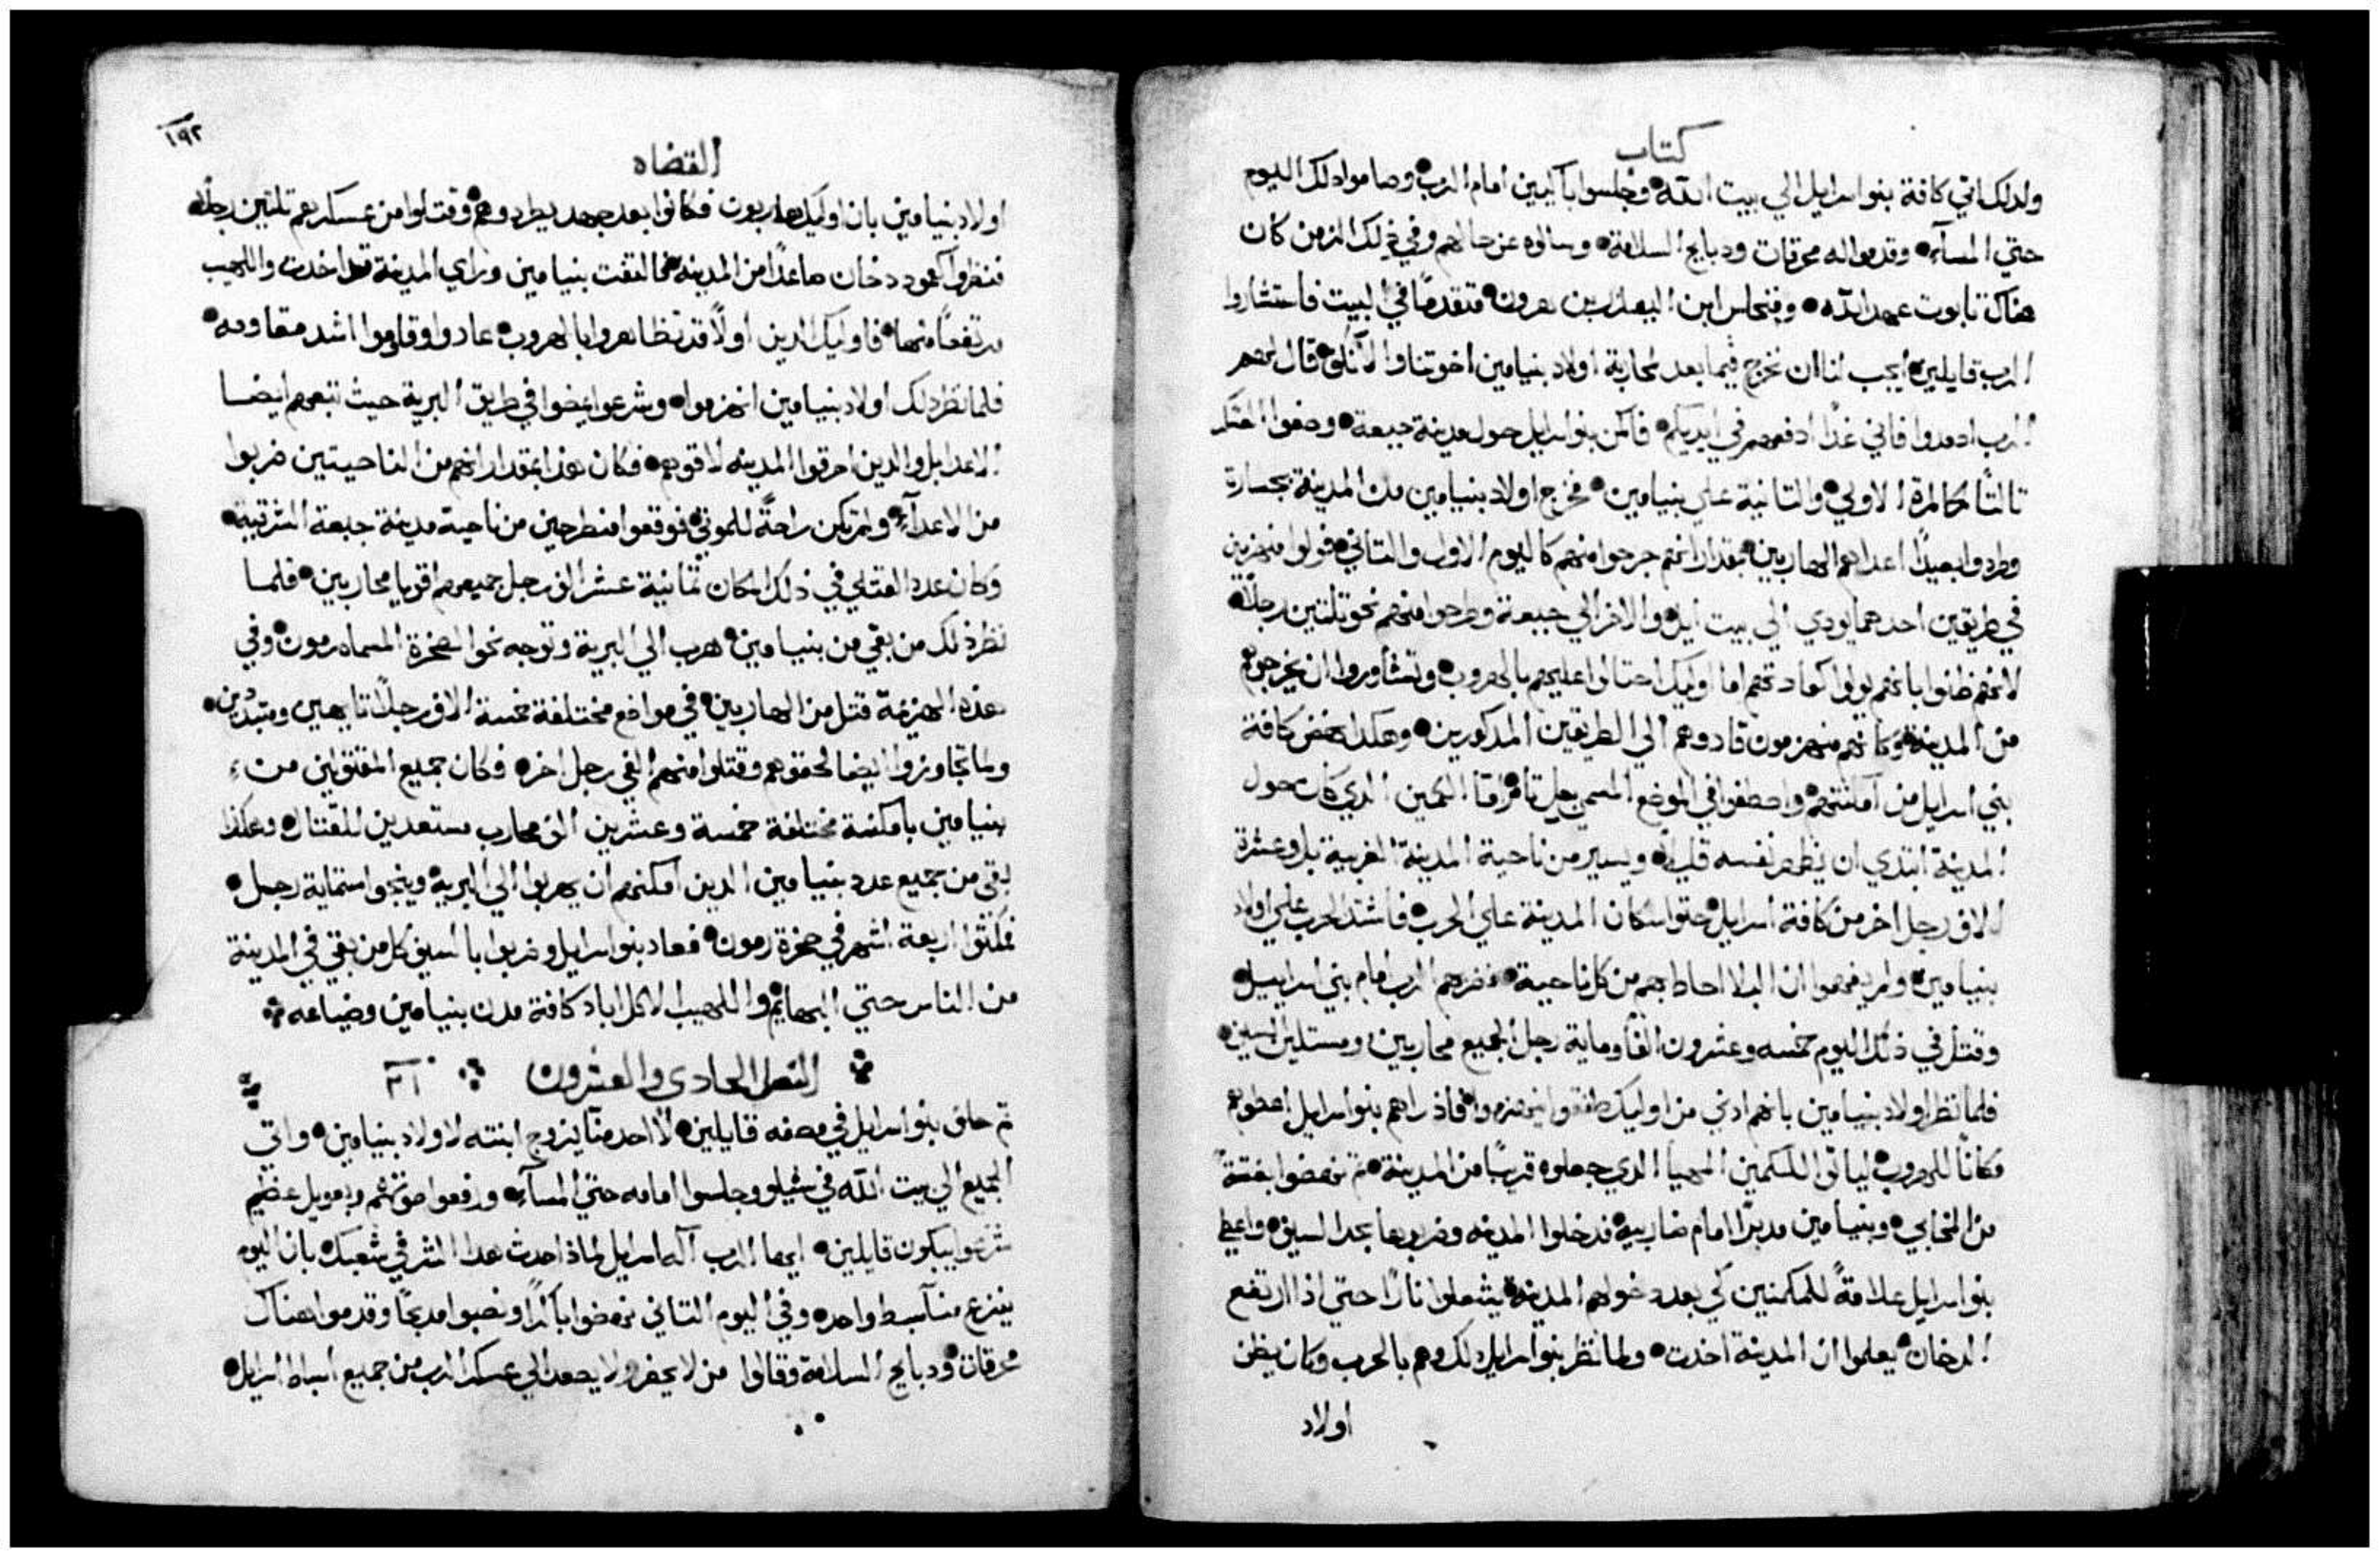 كتاب
ولدلك اتي كافة بنو اسرايل الي بيت الله وجلسوا باكيين امام الرب وصاموا دلك اليوم
حتي المسآء وقدموا له محرقات ودبايح السلامة وسالوه عن حالهم وفي ذلك الزمن كان
هناك تابوت عهد الله وفنحاس ابن اليعازر بن هرون متقدمًا في البيت فاستشاروا
الرب قايلين ايجب لنا ان نخرج فيما بعد لمحاربة اولاد بنيامين اخوتنا او لا قال لهم
الرب اصعدوا فاني غدًا ادفعهم في ايديكم فاكمن بنو اسرايل حول مدينة جبعة وصفوا العسكر
تالتًا كالمرة الاولي والتانية علي بنيامين فخرج اولاد بنيامين من المدينة بجسارة
وطردوا بعيدًا اعداهم الهاربين بمقدار انهم جرحوا منهم كاليوم الاول والتاني فولوا منهزمين
في طريقين احدهما يودي الي بيت ايل والاخر الي جبعة وطرحوا منهم نحو تلتين رجلًا
لانهم ظنوا بانهم يولوا كعادتهم اما اوليك احتالوا عليهم بالهروب وتشاوروا ان يخرجوهم
من المدينة وكانهم منهزمون قادوهم الي الطريقين المدكورين وهكدا نهض كافة
بني اسرايل من امكنتهم واصطفوا في الموضع المسمي بعل تامر اما الكمين الدي كان حول
المدينة ابتدي ان يظهر نفسه قليلًا ويسير من ناحية المدينة الغربية بل وعشرة
الاف رجل اخر من كافة اسرايل حتوا سكان المدينة علي الحرب فاشتد الحرب علي اولاد
بنيامين ولم يفهموا ان البلا احاط بهم من كل ناحية فضربهم الرب امام بني اسراييل
وقتل في ذلك اليوم خمسه وعشرون الفًا وماية رجل الجميع محاربين ومستلين السيف
فلما نظر اولاد بنيامين بانهم ادني من اوليك طفقوا ينهزموا فاذ راهم بنو اسرايل اعطوهم
مكانًا للهروب لياتوا للكمين المهيا الدي جعلوه قريبًا من المدينة تم نهضوا بغتةً
من المخابي وبنيامين مدبرًا امام ضاربيه فدخلوا المدينه وضربوها بحد السيف واعطي
بنو اسرايل علامةً للمكمنين كي بعد دخولهم المدينة يشعلوا نارًا حتي اذا ارتفع
الدخان يعلموا ان المدينة اخدت ولما نظر بنو اسرايل دلك وهم بالحرب وكان يظن
اولاد
القضاه
١٩٢
اولاد بنيامين بان اوليك هاربون فكانوا بعد جهد يطردوهم وقتلوا من عسكرهم تلتين رجلًا
فنظروا كعمود دخان صاعدًا من المدينه فالتفت بنيامين وراي المدينة قد اخدت واللهيب
مرتفعًا منها فاوليك الدين اولًا قد تظاهروا بالهروب عادوا وقاوموا اشد مقاومه
فلما نظر دلك اولاد بنيامين انهزموا وشرعوا يمضوا في طريق البرية حيث تبعهم ايضا
الاعدا بل والدين احرقوا المدينه لاقوهم فكان هدا بمقدار انهم من الناحيتين ضربوا
من الاعدآء ولم تكن راحةً للموتي فوقعوا منطرحين من ناحية مدينة جبعة الشرقيه
وكان عدد القتلي في ذلك المكان تمانية عشر الف رجل جميعهم اقويا محاربين فلما
نظر ذلك من بقي من بنيامين هرب الي البرية وتوجه نحو الصخرة المسماه رمون وفي
هذه الهزيمة قتل من الهاربين في مواضع مختلفة خمسة الاف رجلًا تايهين ومتبددين
ولما تجاوزوا ايضا لحقوهم وقتلوا منهم الفي رجل اخر فكان جميع المقتولين من
بنيامين بامكنة مختلفة خمسة وعشرين الف محارب مستعدين للقتال وهكذا
بقي من جميع عدد بنيامين الدين امكنهم ان يهربوا الي البرية وينجوا ستماية رجل
فمكتوا اربعة اشهر في صخرة رمون فعاد بنو اسرايل وضربوا بالسيف كل من بقي في المدينة
من الناس حتي البهايم واللهيب الاكل اباد كافة مدن بنيامين وضياعه
الفصل الحادي والعشرون ٢١
تم حلف بنو اسرايل في مصفه قايلين لا احد منا يزوج ابنته لاولاد بنيامين واتي
الجميع الي بيت الله في شيلو وجلسوا امامه حتي المسآء ورفعوا صوتهم وبعويل عظيم
شرعوا يبكون قايلين ايها الرب اله اسرايل لماذا حدت هدا الشر في شعبك بان اليوم
ينزع منا سبط واحد وفي اليوم التاني نهضوا باكرًا ونصبوا مدبحًا وقدموا هناك
محرقات ودبايح السلامة وقالوا من لا يحضر ولا يصعد الي عسكر الرب من جميع اسباط اسرايل